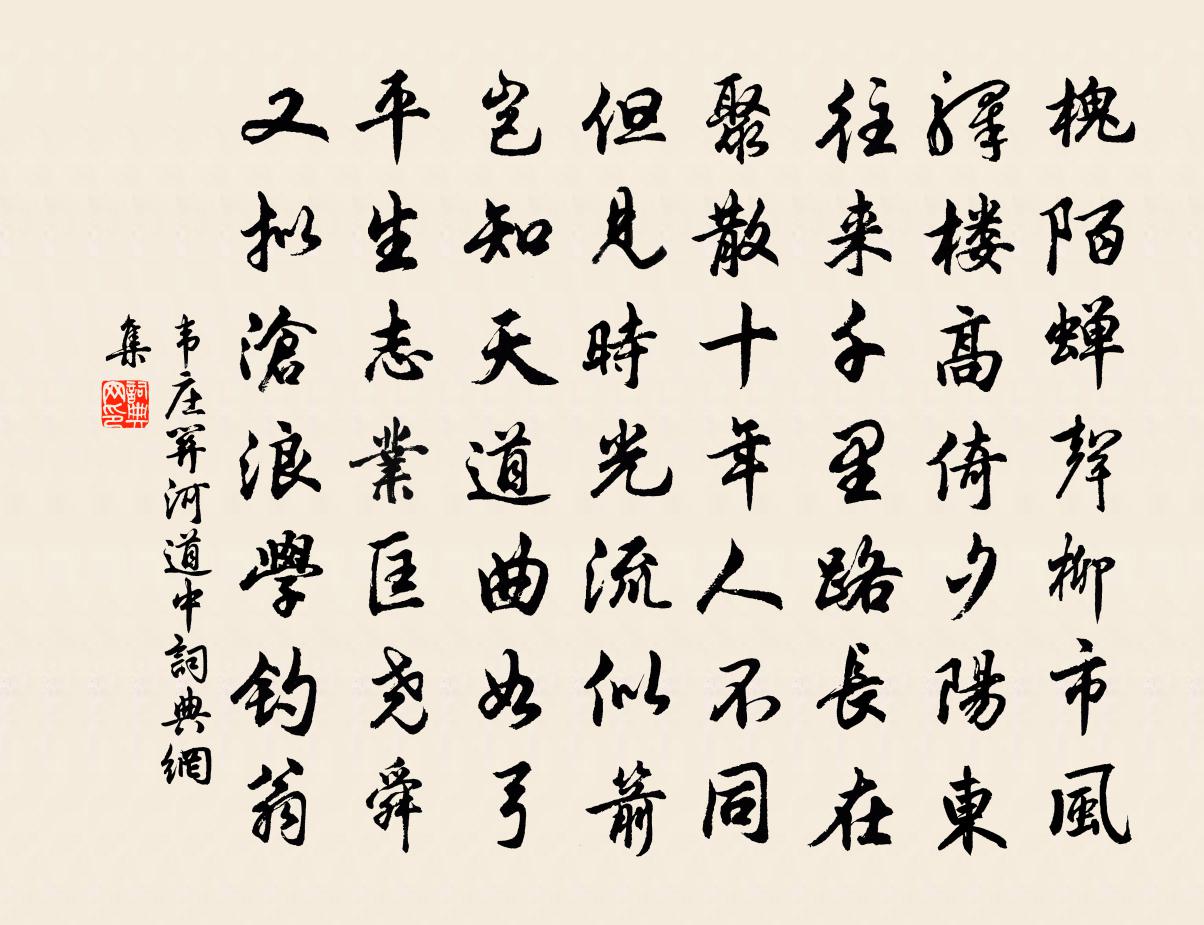 槐陌蝉聲柳市風
驛楼高倚夕陽東
往来千里路長在
聚散十年人不同
但見時光流似箭
豈知天道曲如弓
平生志業匡尧舜
又拟滄浪學釣翁
韦庄関河道中詞典網
集
詞典网印